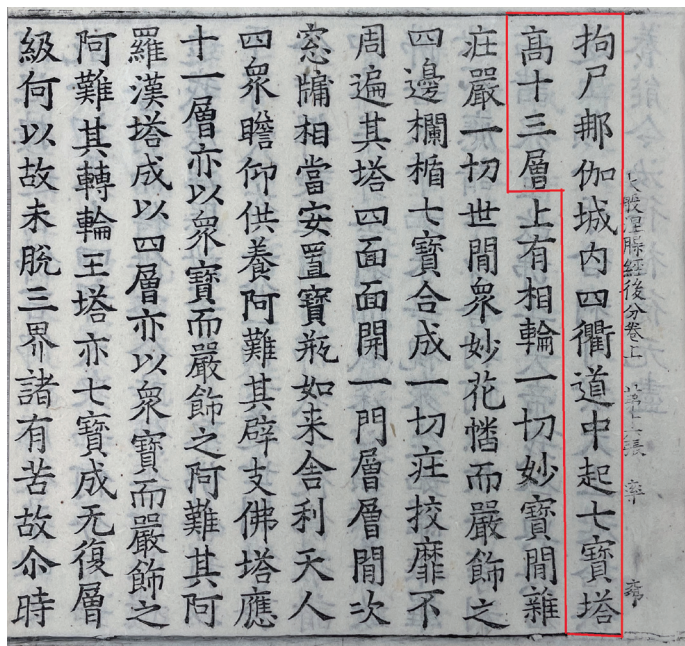 拘尸那伽城内四衢道中起七寶塔
髙十三層上有相輪一切妙寶間雜
莊嚴一切世間衆妙花幡而嚴飾之
四邊欄楯七寶合成一切莊挍靡不
周遍其塔四面面開一門層層間次
窓牖相當安置寶瓶如来舎利天人
四衆瞻仰供養阿難其辟支佛塔應
十一層亦以衆寶而嚴飾之阿難其阿
羅漢塔成以四層亦以衆寶而嚴飾之
阿難其轉輪王塔亦七寶成无復層
級何以故未脫三界諸有苦故尒時
大般涅槃經後分卷上